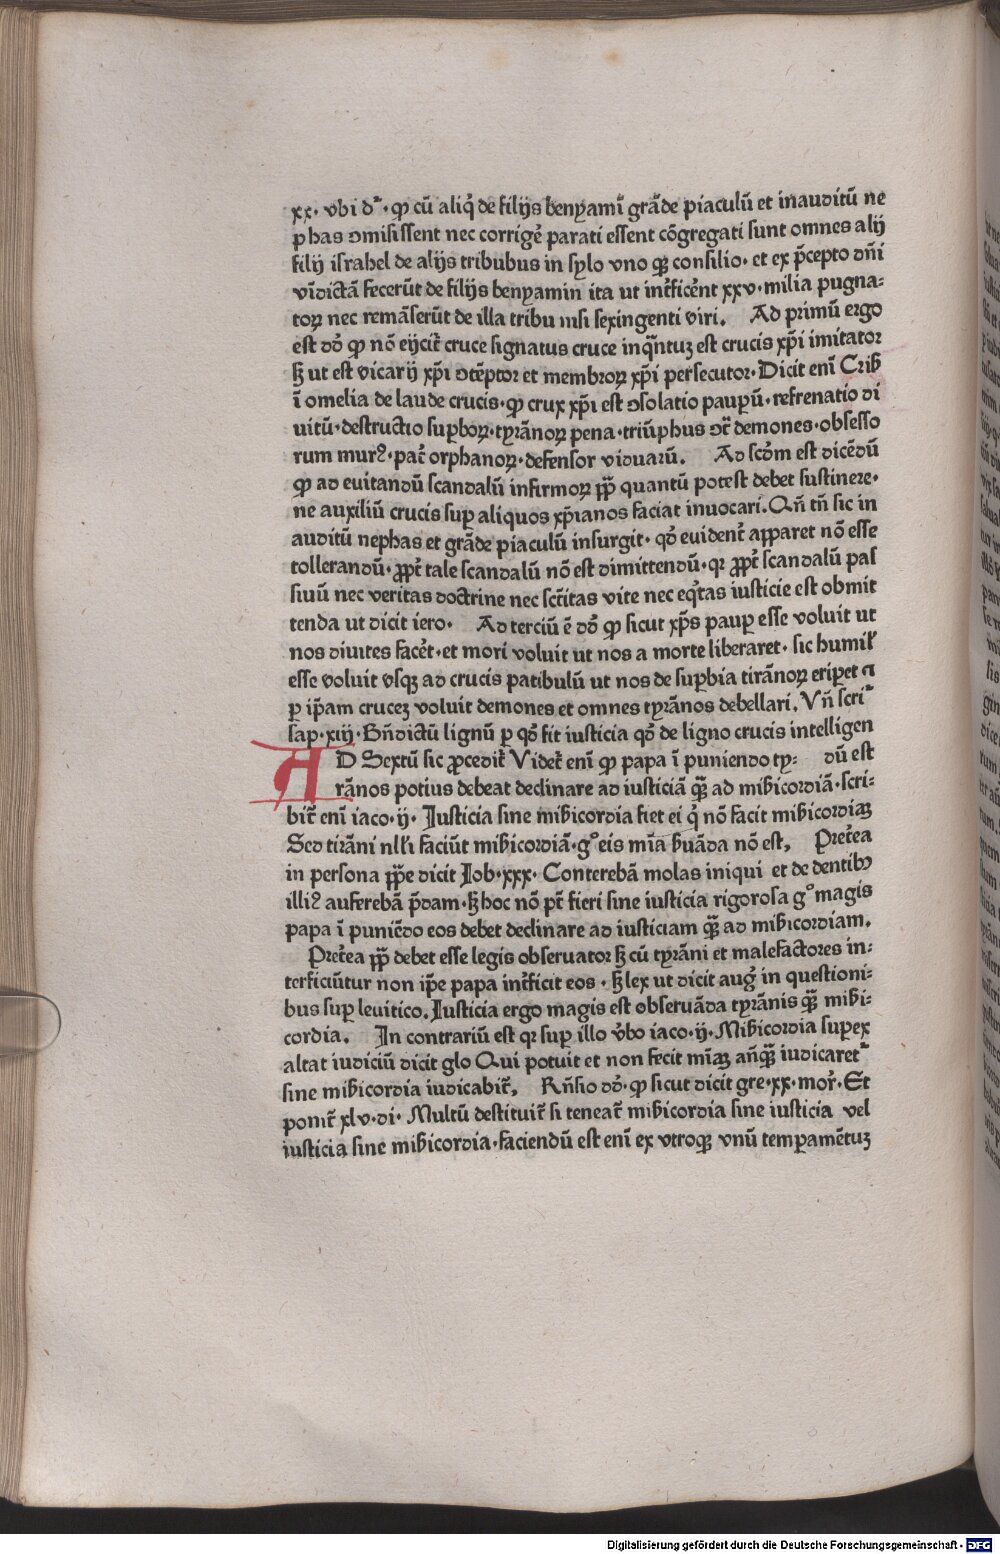 xx. vbi dr. ꝙ cū aliq̇ de filijs benyamī grāde piaculū et inauditū ne
phas ↄmisissent nec corrigē parati essent cōgregati sunt omnes alij
filij israhel de alijs tribubus in sylo vno qꝫ consilio. et ex p̄cepto dn̄i
vīdictā fecerūt de filijs benyamin ita ut int̄ficēnt xxv. milia pugna⸗
toꝝ nec remāserūt de illa tribu nisi sexingenti viri. Ad primū ergo
est dō ꝙ nō eijcit̄ cruce signatus cruce inq̄ntuꝫ est crucis xp̄i imitator
sꝫ ut est vicarij xp̄i ↄtēptor et membroꝝ xp̄i persecutor. Dicit enī Crisͦ
ī omelia de laude crucis. ꝙ crux xp̄i est ↄsolatio paupū. refrenatio di
uitū. destructio supboꝝ. tyrānoꝝ pena. triūphus ↄt̄ demones. obsesso
rum murꝰ. pat̄ orphanoꝝ. defensor viduarū. Ad scd̄m est dicēdū
ꝙ ad euitandū scandalū infirmoꝝ pp̄ quantū potest debet sustinere.
ne auxiliū crucis suꝑ aliquos xp̄ianos faciat inuocari. Qn̄ tn̄ sic in
auditū nephas et grāde piaculū insurgit. qd̄ euident̄ apparet nō esse
tollerandū. ꝓpt̄ tale scandalū nō est dimittendū. qr ꝓpt̄ scandalū pas
siuū nec veritas doctrine nec sc̄titas vite nec eq̇tas iusticie est obmit
tenda ut dicit iero. Ad terciū ē dō ꝙ sicut xp̄s pauꝑ esse voluit ut
nos diuites facēt. et mori voluit ut nos a morte liberaret. sic humił
esse voluit vsqꝫ ad crucis patibulū ut nos de suꝑbia tirānoꝝ eriꝑet ⁊
ꝑ ip̄am cruceꝫ voluit demones et omnes tyrānos debellari. Vn̄ scri
sap. xiij. Bn̄dictū lignū ꝑ qd̄ fit iusticia qd̄ de ligno crucis intelligen
AD Sextū sic ꝓcedit̄ Videt̄ enī ꝙ papa ī puniendo ty⸗ dū est
rānos potius debeat declinare ad iusticiā qꝫ̄ ad mīsicordiā. scri⸗
bit̄ enī iaco. ij. Iusticia sine mīsicordia fiet ei q̇ nō facit mīsicordiaꝫ
Sed tirāni nłłi faciūt mīsicordiā. gͦ eis mīa ẜuāda nō est. Pret̄ea
in persona pp̄e dicit Iob. xxx. Conterebā molas iniqui et de dentibꝰ
illiꝰ auferebā p̄dam. sꝫ hoc nō pt̄ fieri sine iusticia rigorosa gͦ magis
papa ī puniēdo eos debet declinare ad iusticiam qꝫ̄ ad mīsicordiam.
Pret̄ea pp̄ debet esse legis obseruator sꝫ cū tyrāni et malefactores in⸗
terficiūtur non ip̄e papa int̄ficit eos. sꝫ lex ut dicit augͦ in questioni⸗
bus suꝑ leuitico. Iusticia ergo magis est obseruāda tyrānis qꝫ̄ mīsi⸗
cordia. In contrariū est qr suꝑ illo v̄bo iaco. ij. Mīsicordia suꝑex
altat iudiciū dicit glo Qui potuit et non fecit mīaꝫ an̄qꝫ̄ iudicaret
sine mīsicordia iudicabit̄. Rn̄sio dō. ꝙ sicut dicit gre. xx. mor̄. Et
ponit̄ xlv. di. Multū destituit̄ si teneat̄ mīsicordia sine iusticia vel
iusticia sine mīsicordia. faciendū est enī ex vtroqꝫ vnū temꝑamētuꝫ
Digitalisierung gefördert durch die Deutsche Forschungsgemeinschaft - DFG